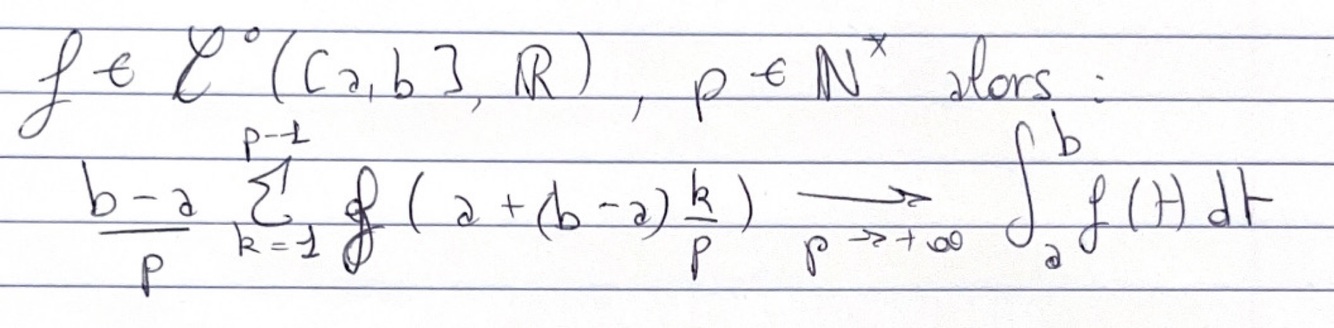 f ∈ 𝒞⁰([a,b], ℝ), p ∈ ℕ* alors :
\frac{b-a}{p} \sum_{k=1}^{p-1} f(a+(b-a)\frac{k}{p}) \xrightarrow[p \to +\infty]{} \int_a^b f(t) dt